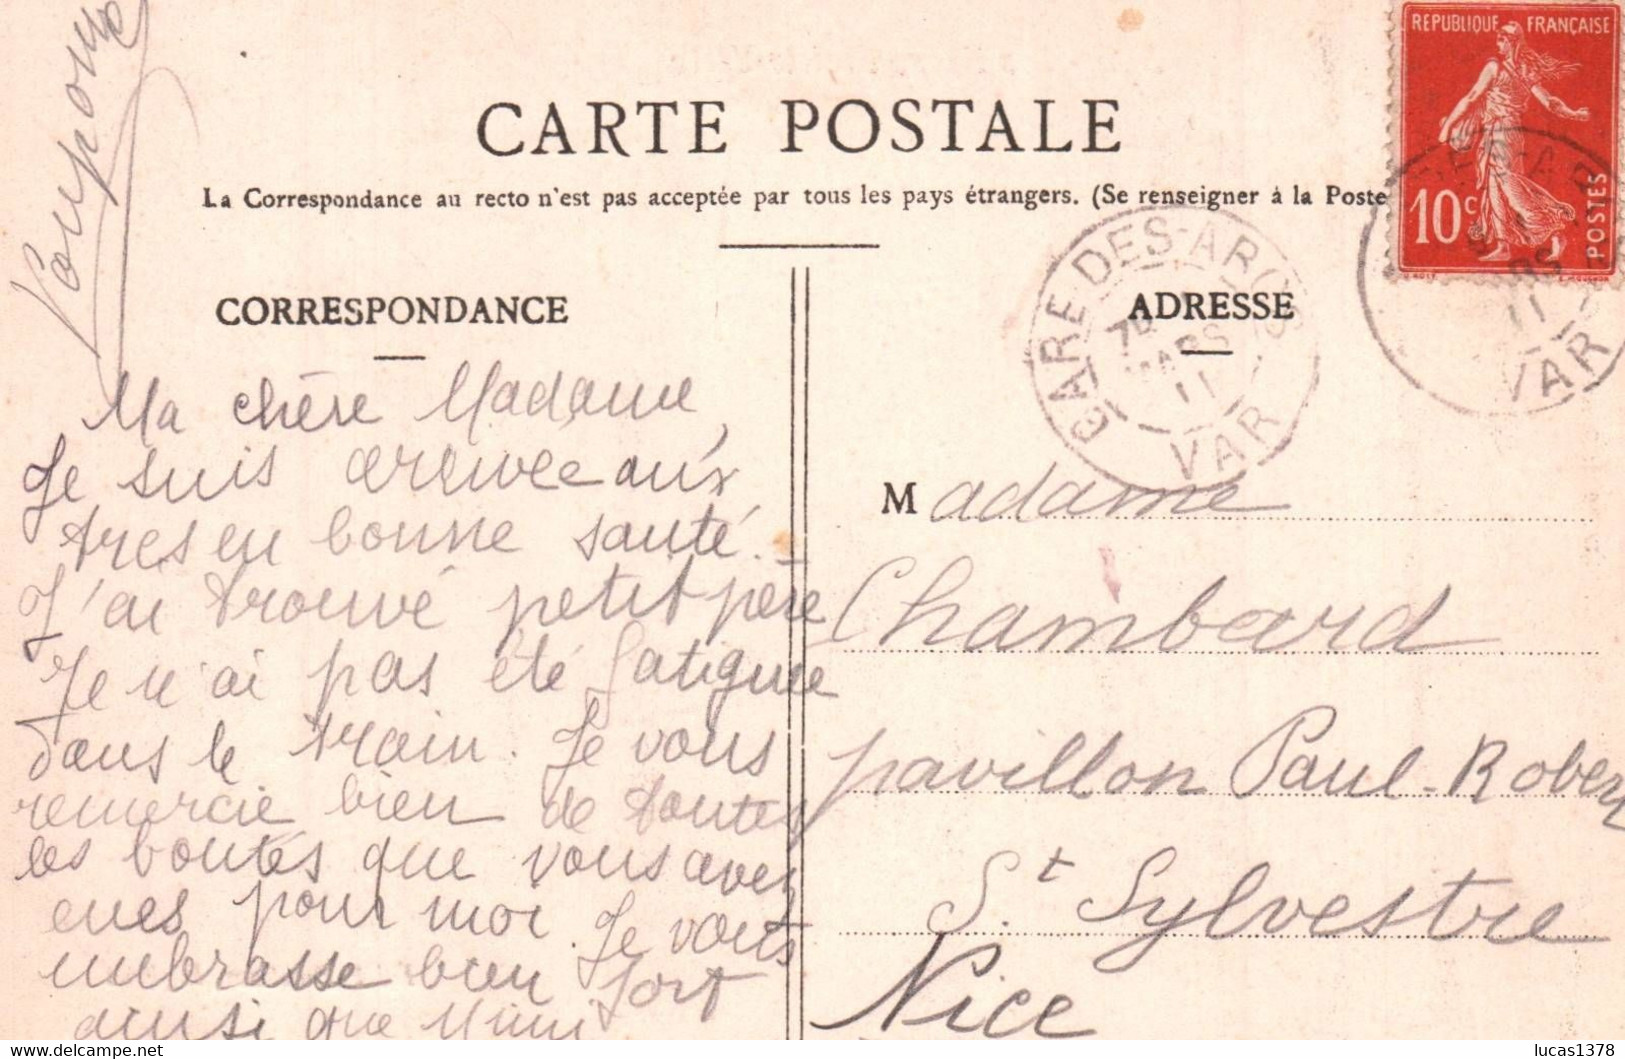 CARTE POSTALE
La Correspondance au recto n'est pas acceptée par tous les pays étrangers. (Se renseigner à la Poste
REPUBLIQUE FRANÇAISE
10c
POSTES
GARE-DES-ARCS
MARS
11
VAR
11
VAR
CORRESPONDANCE
Ma chère Madame,
Je suis arrivée aux
Arcs en bonne santé.
J'ai trouvé petit père
Je n'ai pas été fatiguée
dans le train. Je vous
remercie bien de toutes
les bontés que vous avez
eues pour moi. Je vous
embrasse bien fort
ainsi que Mimi
ADRESSE
Madame
Chambard
pavillon Paul-Robert
St. Sylvestre
Nice
lucas1378